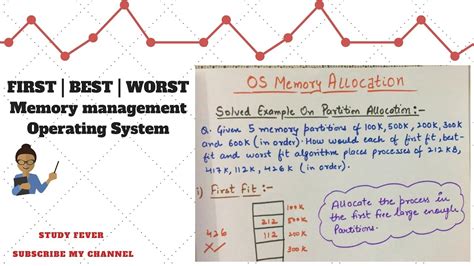 FIRST | BEST | WORST
Memory management
Operating System
STUDY FEVER
SUBSCRIBE MY CHANNEL
OS Memory Allocation
Solved Example On Partition Allocation:-
Q. Given 5 memory partitions of 100K, 500K, 200K, 300K
and 600K (in order). How would each of first fit, best-
fit and worst fit algorithm places processes of 212 KB,
417K, 112K, 426K (in order).
i) First fit :-
100K
212 500K
112 200K
300K
426
Allocate the process in
the first free large enough
Partitions.